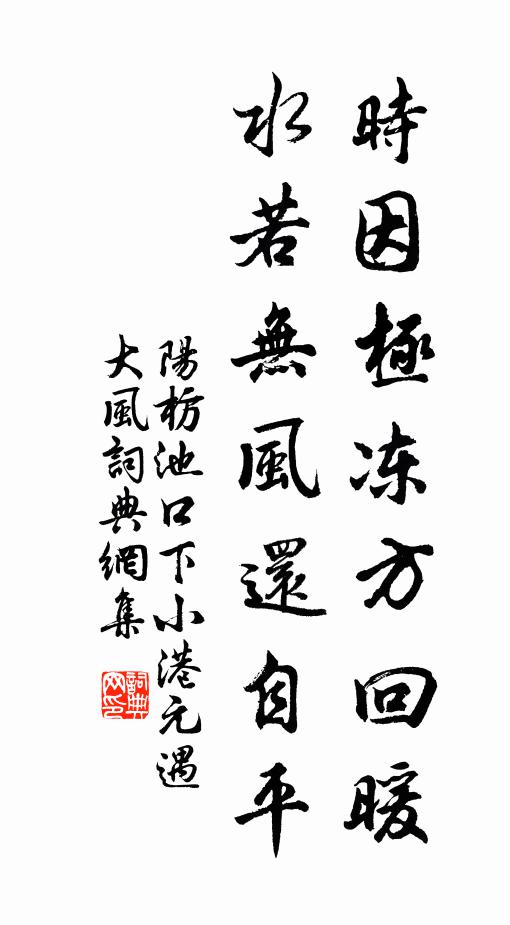 時因極冻方回暖
水若無風還自平
陽枋池口下小港元遇
大風詞典網集
詞典网印